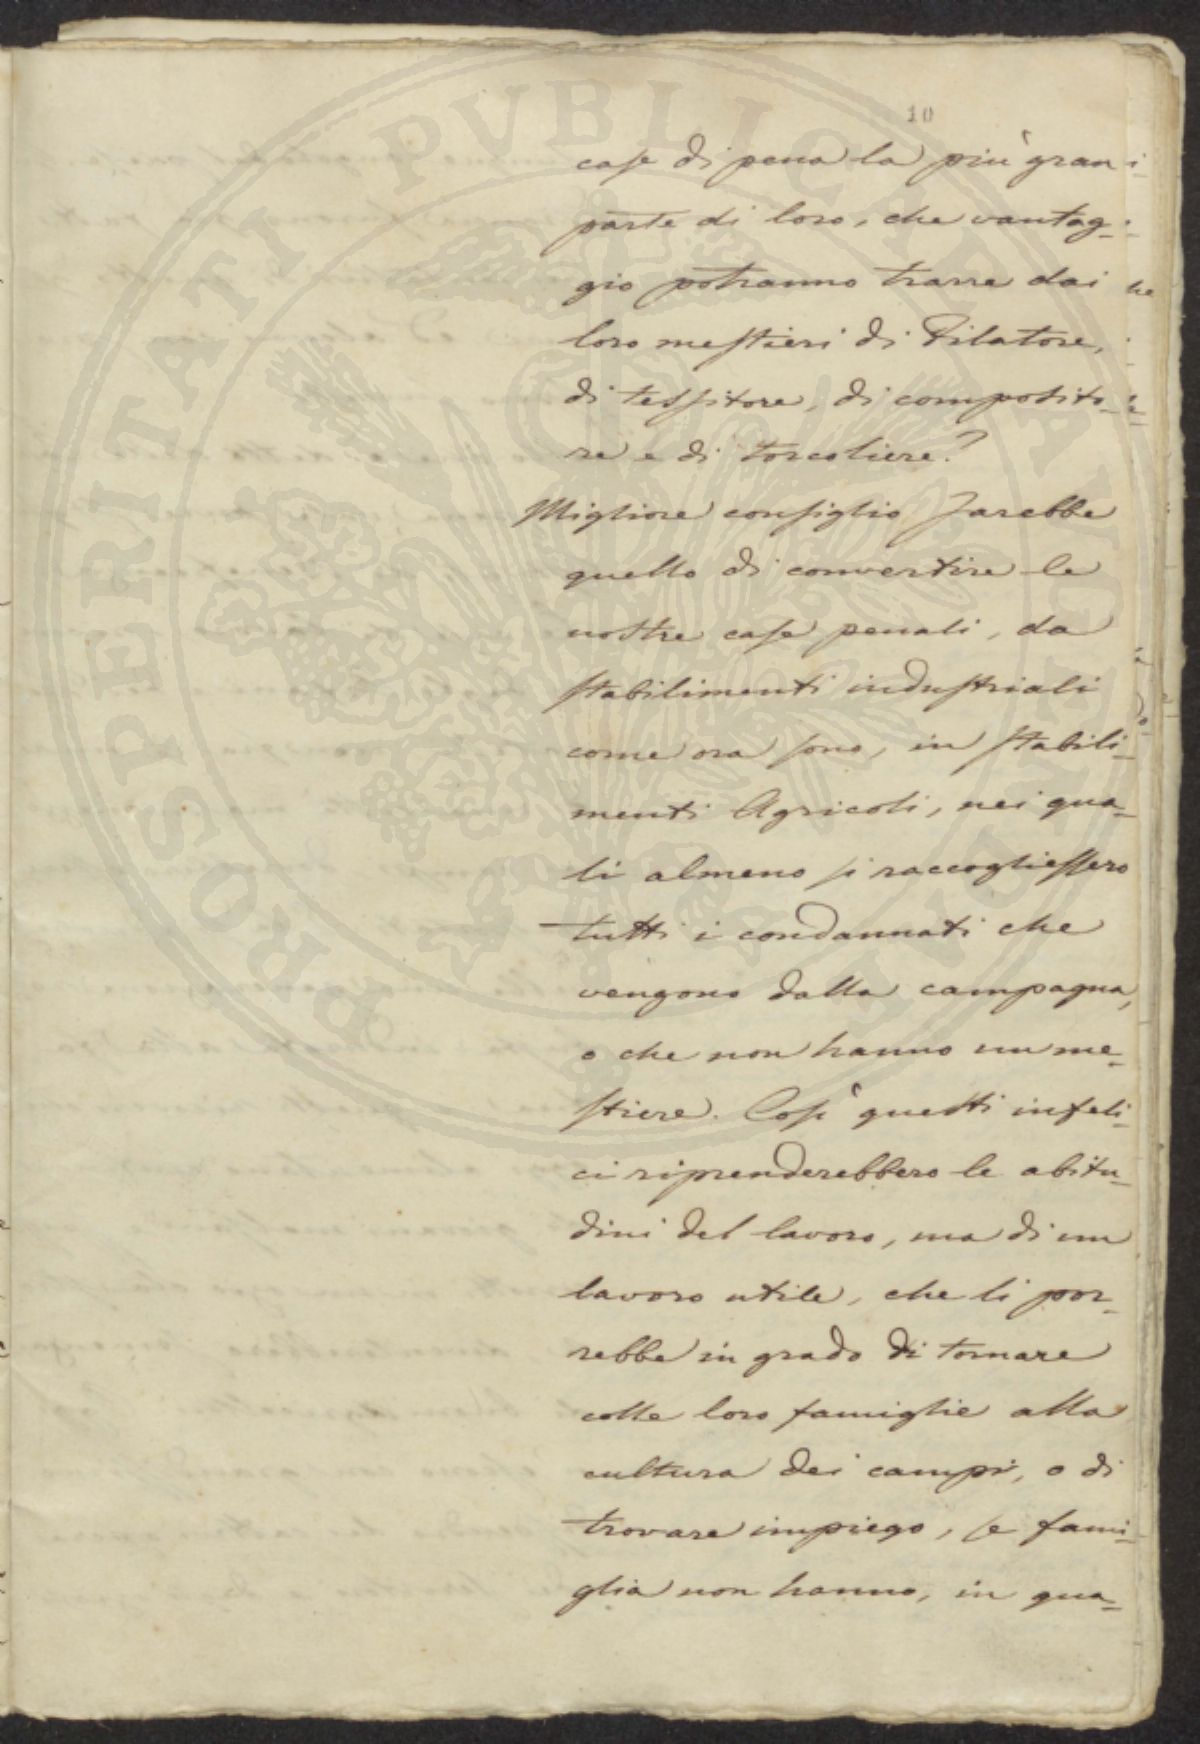 10
case di pena la più gran
parte di loro, che vantag-
gio potranno trarre dai
loro mestieri di Filatore,
di tessitore, di composito-
re e di torcoliere?
Migliore consiglio sarebbe
quello di convertire le
nostre case penali, da
stabilimenti industriali
come ora sono, in stabili-
menti Agricoli, nei qua-
li almeno si raccogliessero
tutti i condannati che
vengono dalla campagna,
o che non hanno un me-
stiere. Così questi infeli-
ci riprenderebbero le abitu-
dini del lavoro, ma di un
lavoro utile, che li por-
rebbe in grado di tornare
colle loro famiglie alla
cultura dei campi, o di
trovare impiego, se fami-
glia non hanno, in qua-
PROSPERITATI PVBLICAE AVGENDAE